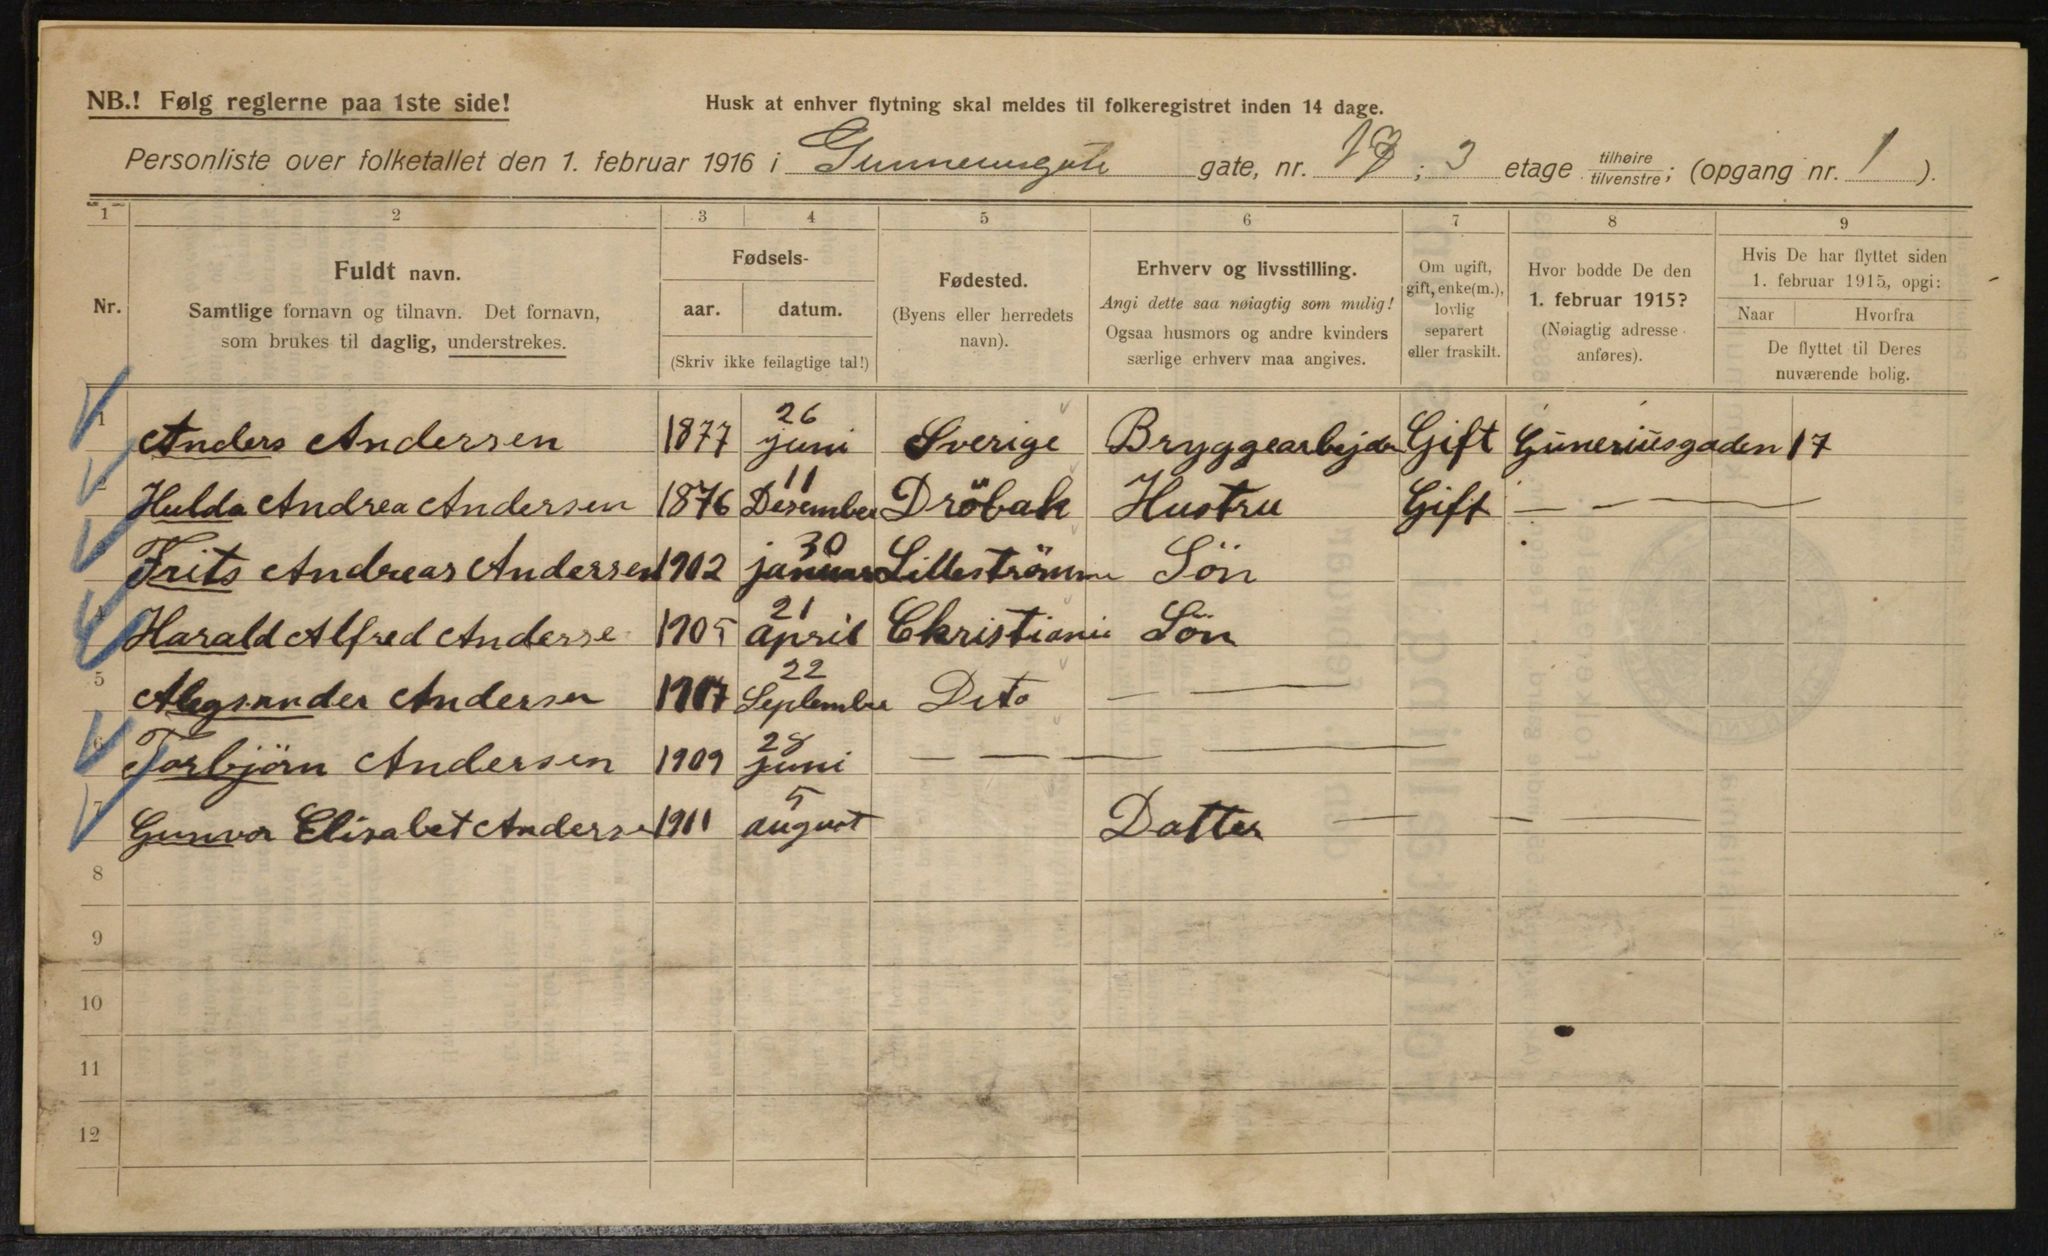 NB.! Følg reglerne paa 1ste side!
Husk at enhver flytning skal meldes til folkeregistret inden 14 dage.
Personliste over folketallet den 1. februar 1916 i Gunneriusgate gate, nr. 17; 3 etage tilhøire/tilvenstre; (opgang nr. 1).
1 2 3 4 5 6 7 8 9
Nr.
Fuldt navn.
Samtlige fornavn og tilnavn. Det fornavn,
som brukes til daglig, understrekes.
Fødsels-
aar. datum.
(Skriv ikke feilagtige tal!)
Fødested.
(Byens eller herredets
navn).
Erhverv og livsstilling.
Angi dette saa nøiagtig som mulig!
Ogsaa husmors og andre kvinders
særlige erhverv maa angives.
Om ugift,
gift, enke(m.),
lovlig
separert
eller fraskilt.
Hvor bodde De den
1. februar 1915?
(Nøiagtig adresse
anføres).
Hvis De har flyttet siden
1. februar 1915, opgi:
Naar Hvorfra
De flyttet til Deres
nuværende bolig.
1 Anders Andersen 1877 26 juni Sverige Bryggearbejder Gift Guneriusgaden 17
2 Hulda Andrea Andersen 1876 11 Desember Dröbak Hustru Gift — — —
Frits Andreas Andersen 1902 30 januar Lilleströmm Sön
4 Harald Alfred Anderse 1905 21 april Christiania Sön
5 Alegsander Andersen 1907 22 September Dito — —
6 Torbjörn Andersen 1909 28 juni — — — —
7 Gunvor Elisabet Andersen 1911 5 august Datter — — —
8
9
10
11
12